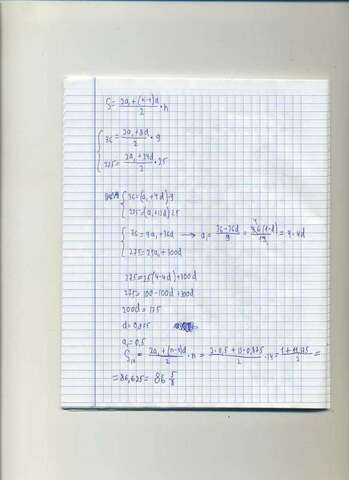 S = (2a₁ + (n-1)d)/2 · n
{ 36 = (2a₁ + 8d)/2 · 9
{ 225 = (2a₁ + 24d)/2 · 25
{ 36 = (a₁ + 4d) 9
{ 225 = (a₁ + 12d) 25
{ 36 = 9a₁ + 36d → a₁ = (36 - 36d)/9 = = 4 - 4d
{ 275 = 25a₁ + 300d
275 = 25(4 - 4d) + 300d
275 = 100 - 100d + 300d
200d = 175
d = 0,875
a₁ = 0,5
S₁₄ = (2a₁ + (n-1)d)/2 · n = (2·0,5 + 13·0,875)/2 · 14 = (1 + 11,375)/2 =
= 86,625 = 86 5/8